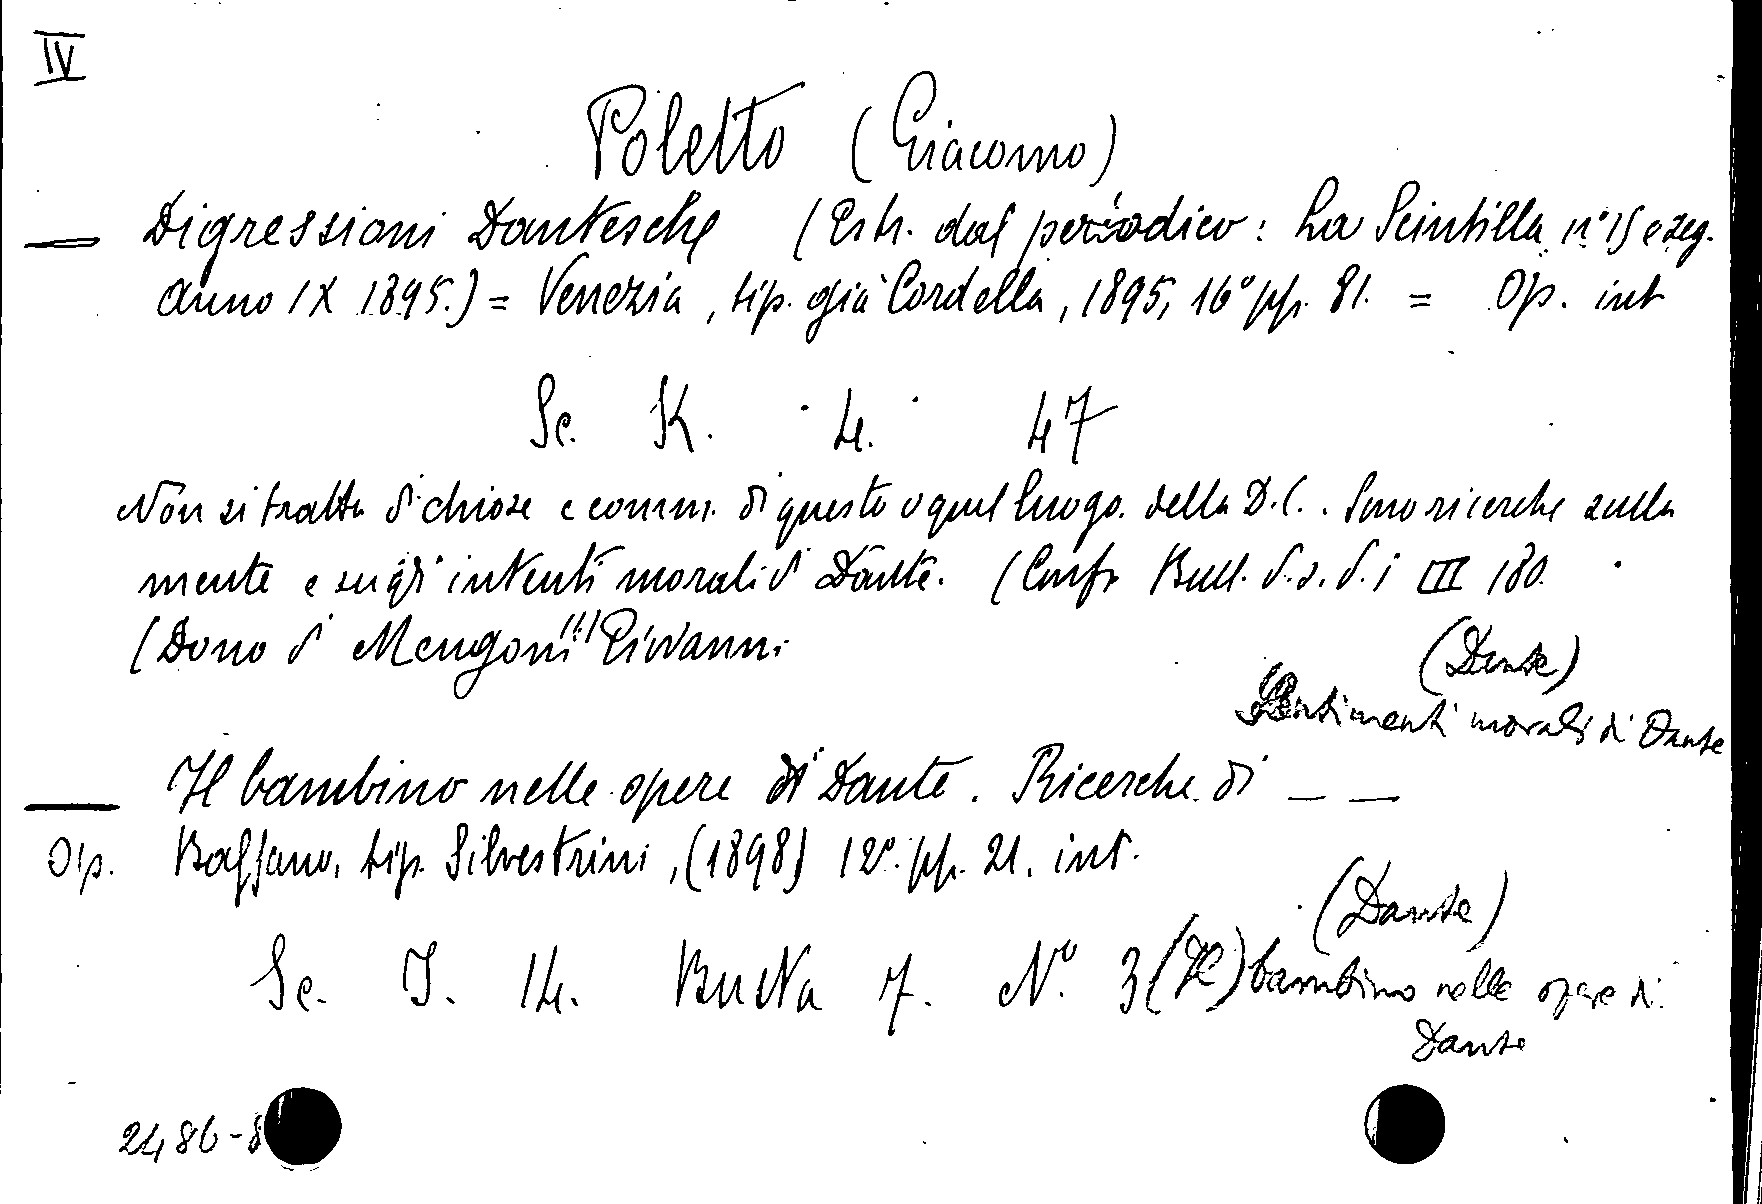 IV
Poletto (Giacomo)
— Digressioni Dantesche (Estr. dal periodico: La Scintilla n° 15 e seg.
anno IX 1895.) = Venezia, tip. già Cordella, 1895, 16° pp. 81. = Op. int
Sc. K. 4. 47
Non si tratta di chiose e comm. di questo o quel luogo della D.C.. Sono ricerche sulla
mente e sugli intenti morali di Dante. (Confr. Bull. d. s. d. i III 180.
(Dono di Mengoni Giovanni
(Dante)
Sentimenti morali di Dante
— Il bambino nelle opere di Dante. Ricerche di — —
Op. Bassano, tip. Silvestrini, (1898) 12°. pp. 21. int.
(Dante)
Sc. I. 14. Busta 7. N° 3 (Il) bambino nelle opere di
Dante
2486-8